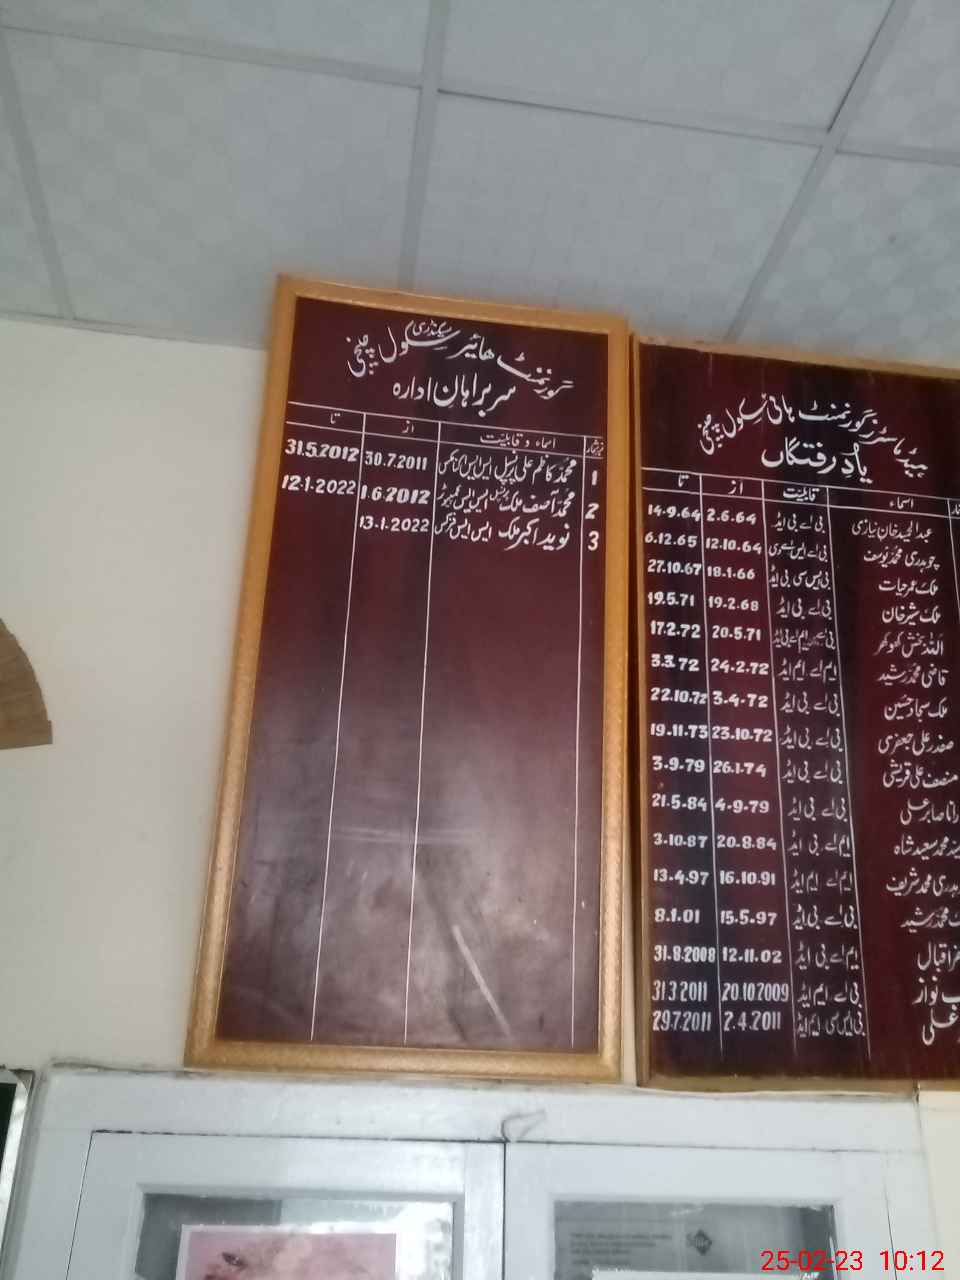 گورنمنٹ ھائیر سیکنڈری سکول چھنی
سربراہانِ ادارہ
نمبرشمار اسماء و قابلیت از تا
1 محمد کاظم علی پرنسپل ایس ایس 30.7.2011 31.5.2012
2 محمد آصف ملک پرنسپل ایس ایس 1.6.2012 12.1.2022
3 نوید اکبر ملک ایس ایس فزکس 13.1.2022
ہیڈماسٹرز گورنمنٹ ہائی سکول چھنی
یادِ رفتگاں
اسماء قابلیت از تا
عبدالمجید خان نیازی بی اے بی ایڈ 2.6.64 14.9.64
چوہدری محمد یوسف بی اے ایس اے وی 12.10.64 6.12.65
ملک عمر حیات بی ایس سی بی ایڈ 18.1.66 27.10.67
ملک شیر خان بی اے بی ایڈ 19.2.68 19.5.71
اللہ بخش کھوکھر 20.5.71 17.2.72
قاضی محمد رشید ایم اے ایم ایڈ 24.2.72 3.3.72
ملک سجاد حسین بی اے بی ایڈ 3-4-72 22.10.72
صفدر علی جعفری بی اے بی ایڈ 23.10.72 19.11.73
منصف علی قریشی بی اے بی ایڈ 26.1.74 3.9.79
رانا صابر علی بی اے بی ایڈ 4-9-79 21.5.84
محمد سعید شاہ ایم اے بی ایڈ 20.8.84 3.10.87
محمد شریف ایم اے ایم ایڈ 16.10.91 13.4.97
محمد رشید بی اے بی ایڈ 15.5.97 8.1.01
اقبال ایم اے بی ایڈ 12.11.02 31.8.2008
نواز بی اے ایم ایڈ 20.10.2009 31.3.2011
علی بی ایس سی ایم ایڈ 2.4.2011 29.7.2011
25-02-23 10:12